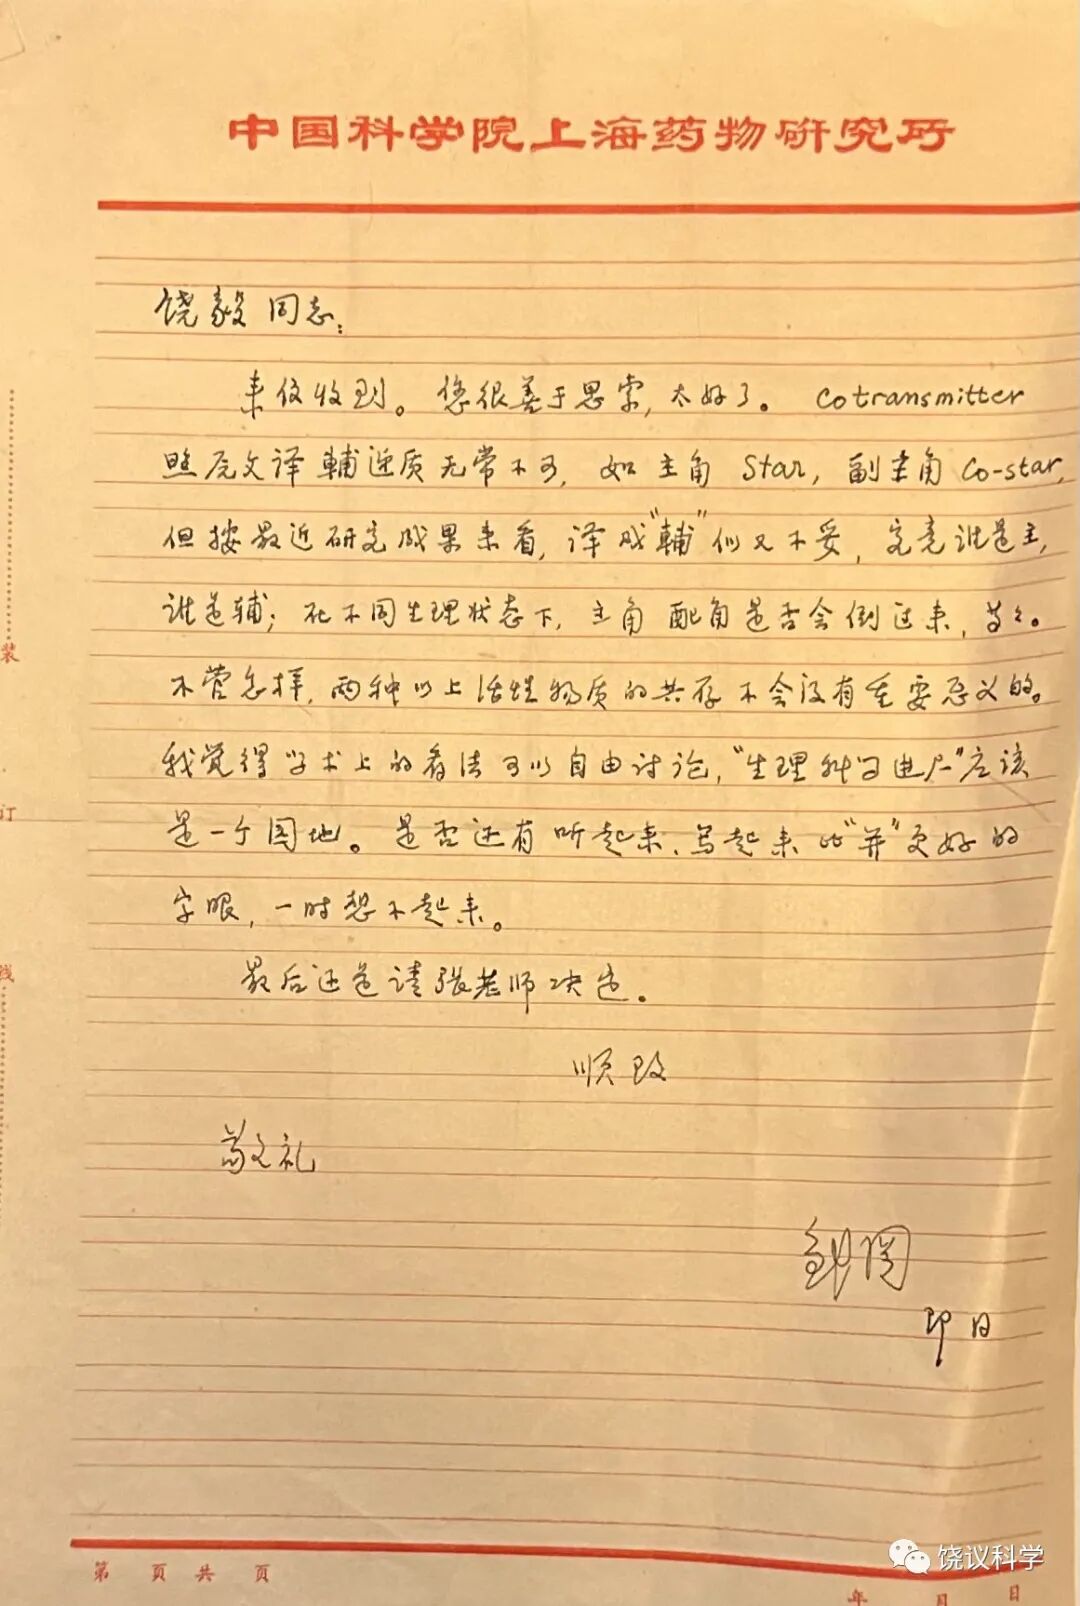 中国科学院上海药物研究所
饶毅同志:
来信收到。您很善于思索,太好了。 Cotransmitter
照原文译輔递质无常不可,如主角 Star, 副主角 Co-star,
但按最近研究成果来看,译成“輔”似又不妥,究竟谁是主,
谁是辅;在不同生理状态下,主角配角是否会倒过来,等々。
不管怎样,两种以上活性物质的共存不会没有重要意义的。
我觉得学术上的看法可以自由讨论,“生理科学进展”应该
是一个园地。是否还有听起来、写起来比“并”更好的
字眼,一时想不起来。
最后还是请张老师决定。
顺致
敬礼
邹冈
即日
装
订
线
第 页 共 页
年 月 日
饶议科学